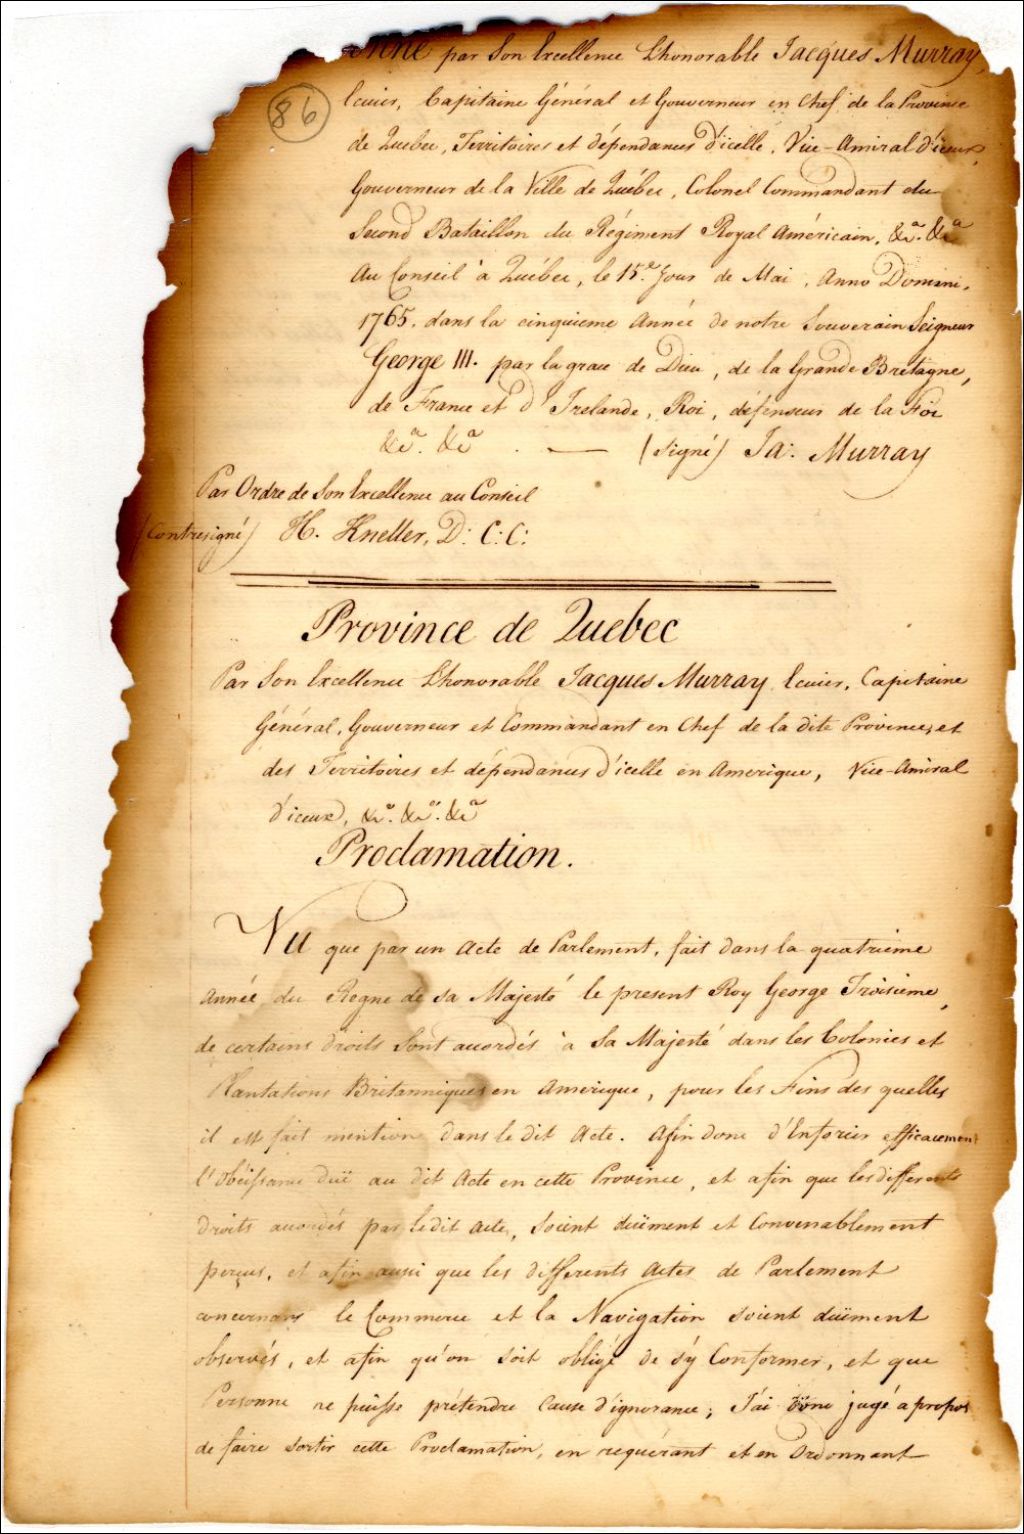 par Son Excellence L'honorable Jacques Murray,
86
Ecuier, Capitaine Général et Gouverneur en Chef de la Province
de Quebec, Territoires et dépendances d'icelle, Vice-Amiral d'iceux,
Gouverneur de la Ville de Québec, Colonel Commandant du
Second Bataillon du Régiment Royal Américain, &ca. &ca
Au Conseil à Québec, le 15.e Jour de Mai, Anno Domini,
1765. dans la cinquieme Année de notre Souverain Seigneur
George III. par la grace de Dieu, de la Grande Bretagne,
de France et d'Irelande, Roi, défenseur de la Foi
&ca. &ca. — (signé) Ja: Murray
Par Ordre de Son Excellence au Conseil
(Contresigné) H. Kneller, D: C: C:
Province de Quebec
Par Son Excellence L'honorable Jacques Murray, Ecuier, Capitaine
Général, Gouverneur et Commandant en Chef de la dite Province, et
des Territoires et dépendances d'icelle en Amerique, Vice-Amiral
d'iceux, &ca. &ca. &ca
Proclamation.
Vu que par un Acte de Parlement, fait dans la quatrieme
Année du Regne de sa Majesté le present Roy George Troisieme,
de certains droits sont accordés à Sa Majesté dans les Colonies et
Plantations Britanniques en Amerique, pour les Fins des quelles
il est fait mention dans le dit Acte. Afin donc d'Enforcer efficacement
l'obéissance duë au dit Acte en cette Province, et afin que les differents
droits accordés par ledit acte, soient duëment et Convenablement
perçus, et afin aussi que les differents Actes de Parlement
concernans le Commerce et la Navigation soient duëment
observés, et afin qu'on soit obligé de s'y Conformer, et que
Personne ne puisse prétendre Cause d'ignorance; J'ai donc jugé a propos
de faire sortir cette Proclamation, en requérant et en Ordonnant